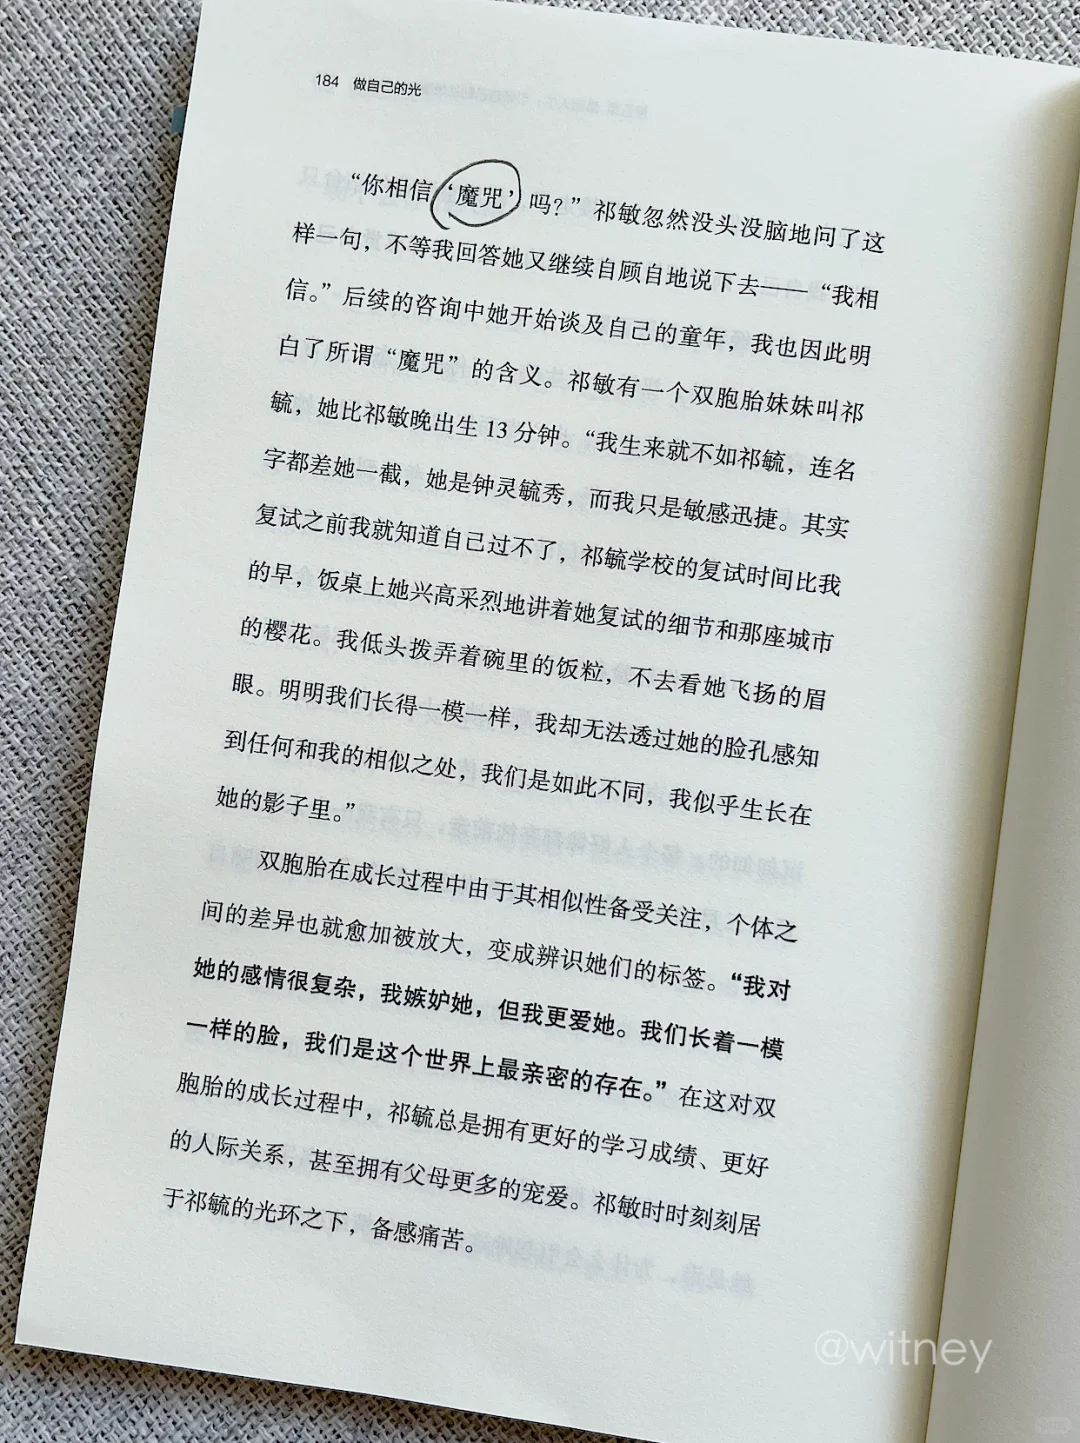 184 做自己的光
“你相信‘魔咒’吗？”祁敏忽然没头没脑地问了这
样一句，不等我回答她又继续自顾自地说下去——“我相
信。”后续的咨询中她开始谈及自己的童年，我也因此明
白了所谓“魔咒”的含义。祁敏有一个双胞胎妹妹叫祁
毓，她比祁敏晚出生 13 分钟。“我生来就不如祁毓，连名
字都差她一截，她是钟灵毓秀，而我只是敏感迅捷。其实
复试之前我就知道自己过不了，祁毓学校的复试时间比我
的早，饭桌上她兴高采烈地讲着她复试的细节和那座城市
的樱花。我低头拨弄着碗里的饭粒，不去看她飞扬的眉
眼。明明我们长得一模一样，我却无法透过她的脸孔感知
到任何和我的相似之处，我们是如此不同，我似乎生长在
她的影子里。”
双胞胎在成长过程中由于其相似性备受关注，个体之
间的差异也就愈加被放大，变成辨识她们的标签。“我对
她的感情很复杂，我嫉妒她，但我更爱她。我们长着一模
一样的脸，我们是这个世界上最亲密的存在。”在这对双
胞胎的成长过程中，祁毓总是拥有更好的学习成绩、更好
的人际关系，甚至拥有父母更多的宠爱。祁敏时时刻刻居
于祁毓的光环之下，备感痛苦。
@witney